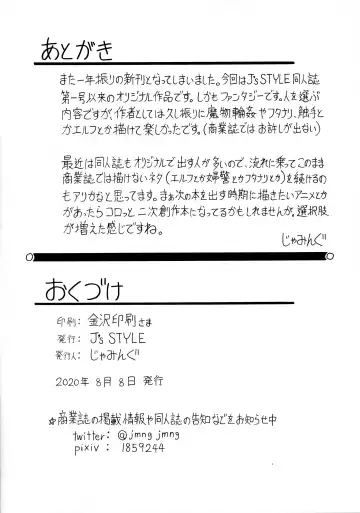 あとがき
また一年振りの新刊となってしまいました。今回はJ's STYLE同人誌
第一号以来のオリジナル作品です。しかもファンタジーです。人を選ぶ
内容ですが、作者としては久し振りに魔物輪姦やフタナリ、触手と
かエルフとか描けて楽しかったです。(商業誌ではお許しが出ない)
最近は同人誌もオリジナルで出す人が多いので、流れに乗ってこのまま
商業誌では描けないネタ(エルフとか婦警とかフタナリとか)を続けるの
もアリかなと思ってます。まぁ次の本を出す時期に描きたいアニメとか
があったらコロッと二次創作本になってるかもしれませんが。選択肢
が増えた感じですね。
じゃみんぐ
おくづけ
印刷: 金沢印刷さま
発行: J's STYLE
発行人: じゃみんぐ
2020年 8月 8日 発行
☆商業誌の掲載情報や同人誌の告知などをお知らせ中
twitter: @jmng_jmng
pixiv : 1859244